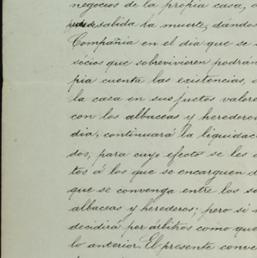 negocios de la propia casa,
sabida ha muerte, dándos
Compañia en el dia que se
socios que sobrevivieren podrán
pia cuenta las existencias,
la casa en sus justos valores
con los albaceas y herederos
dia; continuará la liquidac
dos; para cuyo efecto se les
tos á los que se encarguen d
que se convenga entre los so
albaceas y herederos; pero si
decidirá por árbitros como que
lo anterior. El presente conve